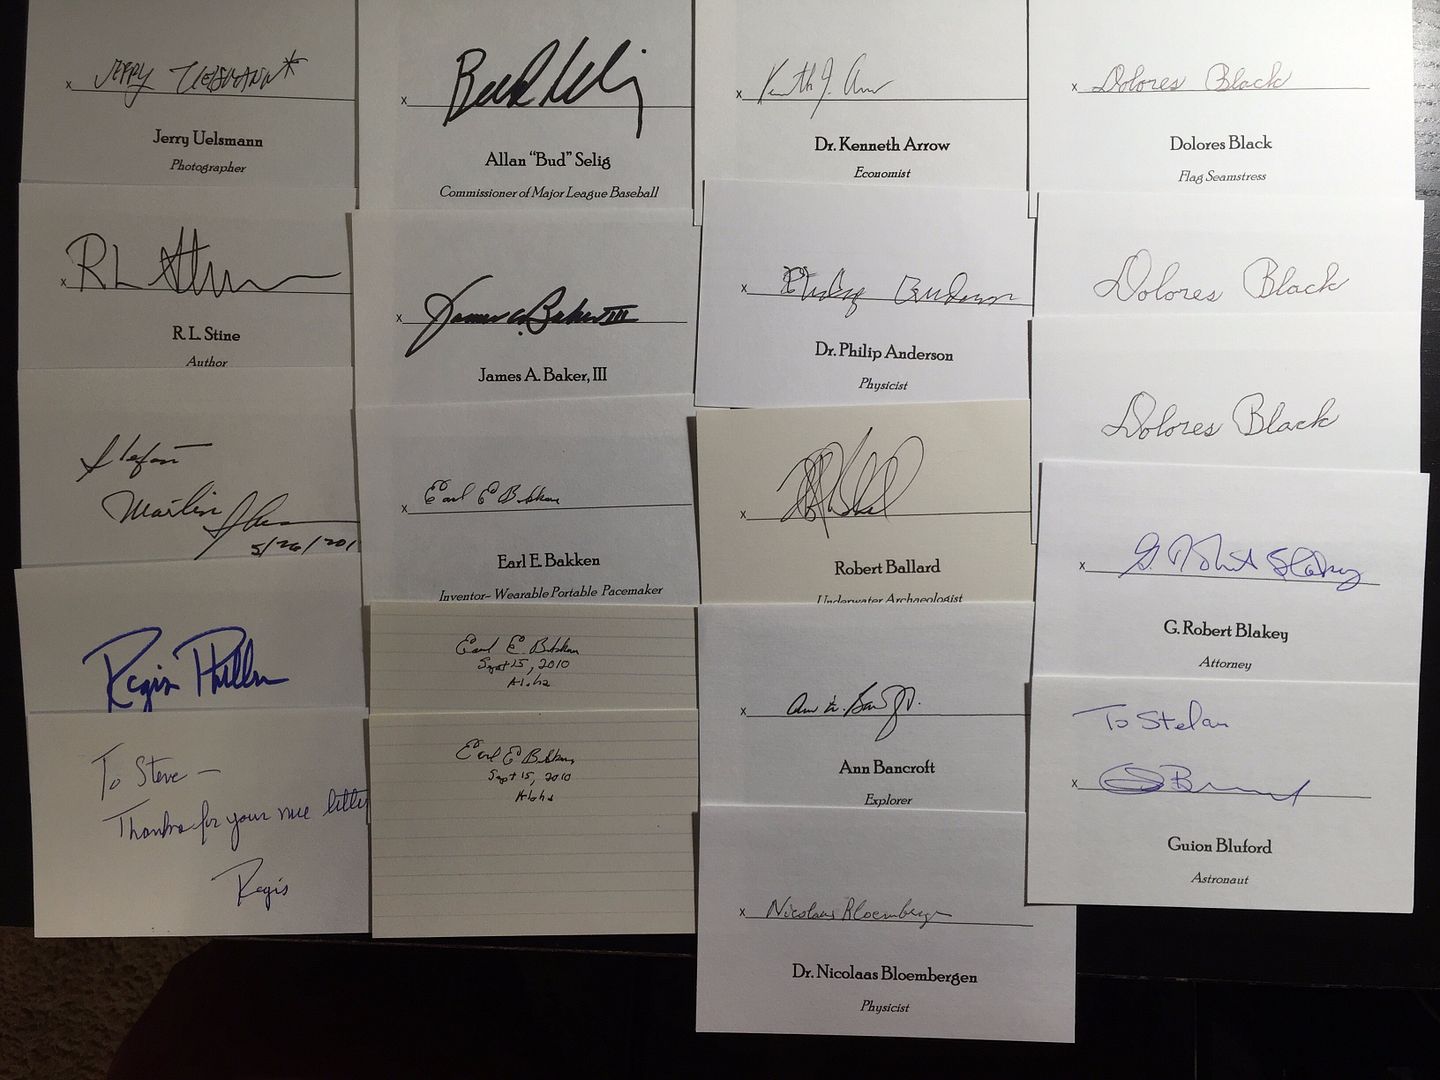 x Jerry Uelsmann*
Jerry Uelsmann
Photographer
x R L Stine
R. L. Stine
Author
Stefan
Martin
5/26/201
Regis Philbin
To Steve —
Thanks for your nice letter
Regis
x Bud Selig
Allan "Bud" Selig
Commissioner of Major League Baseball
x James A. Baker III
James A. Baker, III
x Earl E Bakken
Earl E. Bakken
Inventor- Wearable Portable Pacemaker
Earl E. Bakken
Sept 15, 2010
Aloha
Earl E Bakken
Sept 15, 2010
Aloha
x Kenneth J. Arrow
Dr. Kenneth Arrow
Economist
x Philip Anderson
Dr. Philip Anderson
Physicist
x
Robert Ballard
Underwater Archaeologist
x
Ann Bancroft
Explorer
x Nicolaas Bloembergen
Dr. Nicolaas Bloembergen
Physicist
x Dolores Black
Dolores Black
Flag Seamstress
Dolores Black
Dolores Black
x G. Robert Blakey
G. Robert Blakey
Attorney
To Stefan
x
Guion Bluford
Astronaut